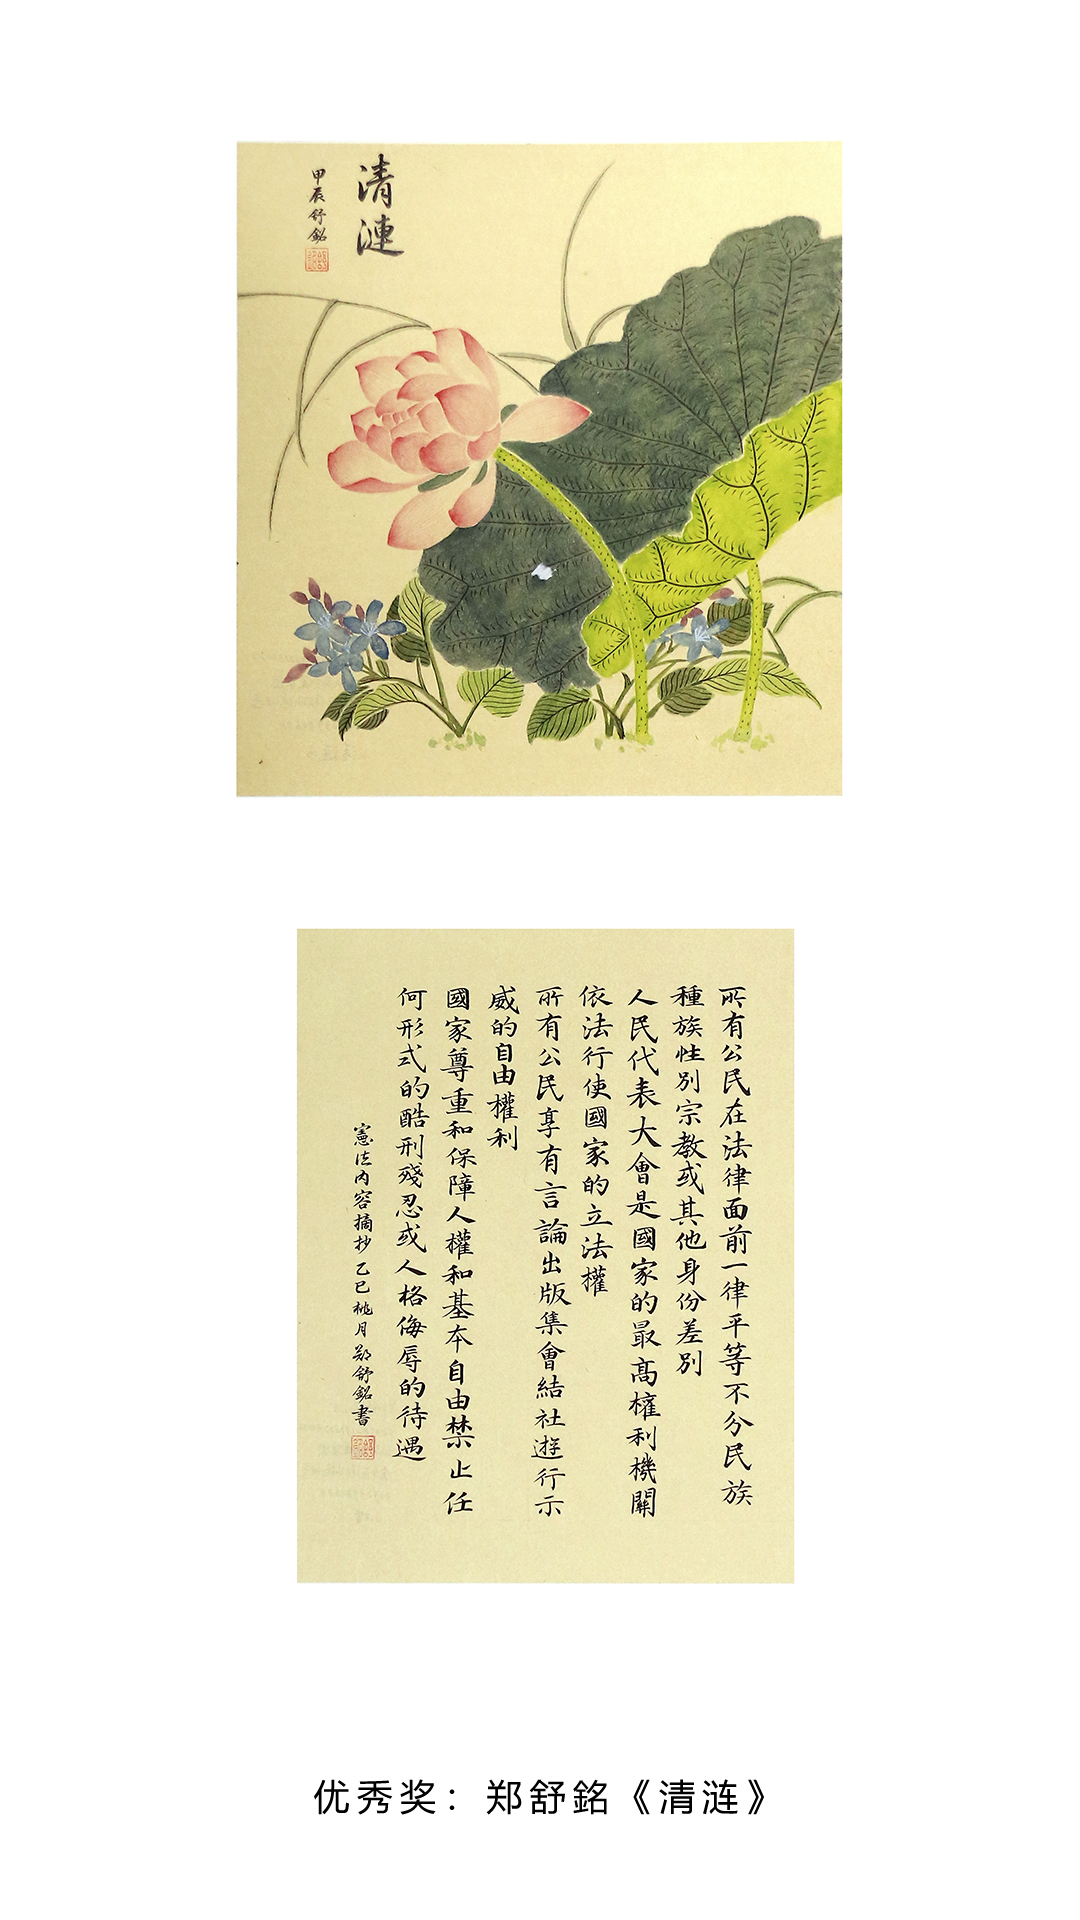 清漣
甲辰舒銘
所有公民在法律面前一律平等不分民族
種族性別宗教或其他身份差別
人民代表大會是國家的最高權利機關
依法行使國家的立法權
所有公民享有言論出版集會結社遊行示
威的自由權利
國家尊重和保障人權和基本自由禁止任
何形式的酷刑殘忍或人格侮辱的待遇
憲法內容摘抄乙巳桃月鄭舒銘書
优秀奖：郑舒銘《清涟》